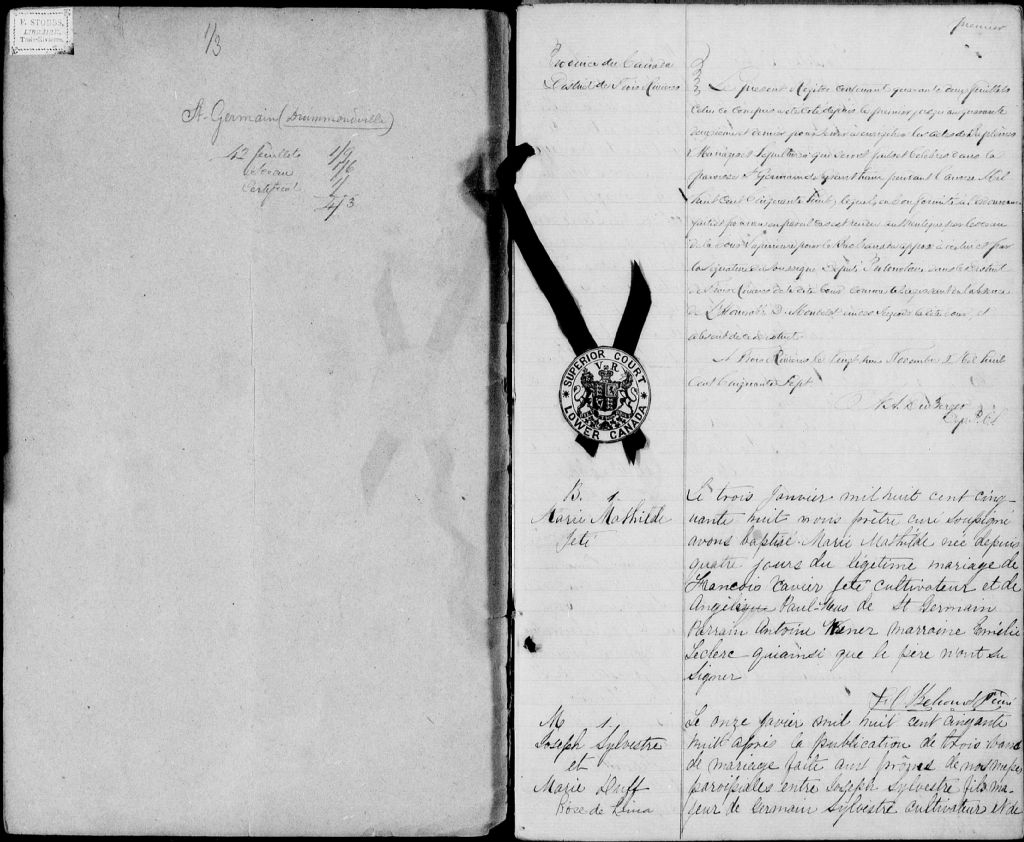 F. STOBBS,
LIBRAIRE,
Trois-Rivières.
1/3
St. Germain (Drummondville)
42 feuillets 1/9
1/6
Certificat 1/
4/3
premier
Province du Canada
District de Trois Rivières
Le présent Régistre contenant quarante deux feuillets
celui ci compris a été coté depuis le premier jusqu'au quarante
deuxième et dernier pour servir à enregistrer les actes de Baptêmes
Mariages et Sépultures qui seront faits et célébrés dans la
paroisse St Germain de pendant l'année Mil
huit cent Cinquante huit, lequel, en conformité à
été rendu authentique par le sceau
de la Cour Supérieure pour le Bas Canada apposé à celui ci et par
la signature du soussigné Député Protonotaire dans le District
de Trois Rivières de la dite Cour
de L'Honorable D. Mondelet un des Juges de la dite Cour, et
absent de ce district
A Trois Rivières le Novembre Mil huit
cent Cinquante Sept
Dep. P.
SUPERIOR COURT
V R
LOWER CANADA
B. 1
Marie Mathilde
Jeté
Le trois Janvier mil huit cent cinq-
uante huit nous prêtre curé soussigné
avons baptisé Marie Mathilde née depuis
quatre jours du légitime mariage de
François Xavier Jeté cultivateur et de
Angélique Paul-Hus de St Germain
Parrain Antoine marraine Emélie
Leclerc qui ainsi que le père n'ont su
signer
M 1
Joseph Sylvestre
et
Marie Duff
Rose de Lima
Le onze Javier mil huit cent cinqante
huit après la publication de trois bans
de mariage faite aux prônes de nos messes
paroissiales entre Joseph Sylvestre fils ma-
jeur de Germain Sylvestre cultivateur et de